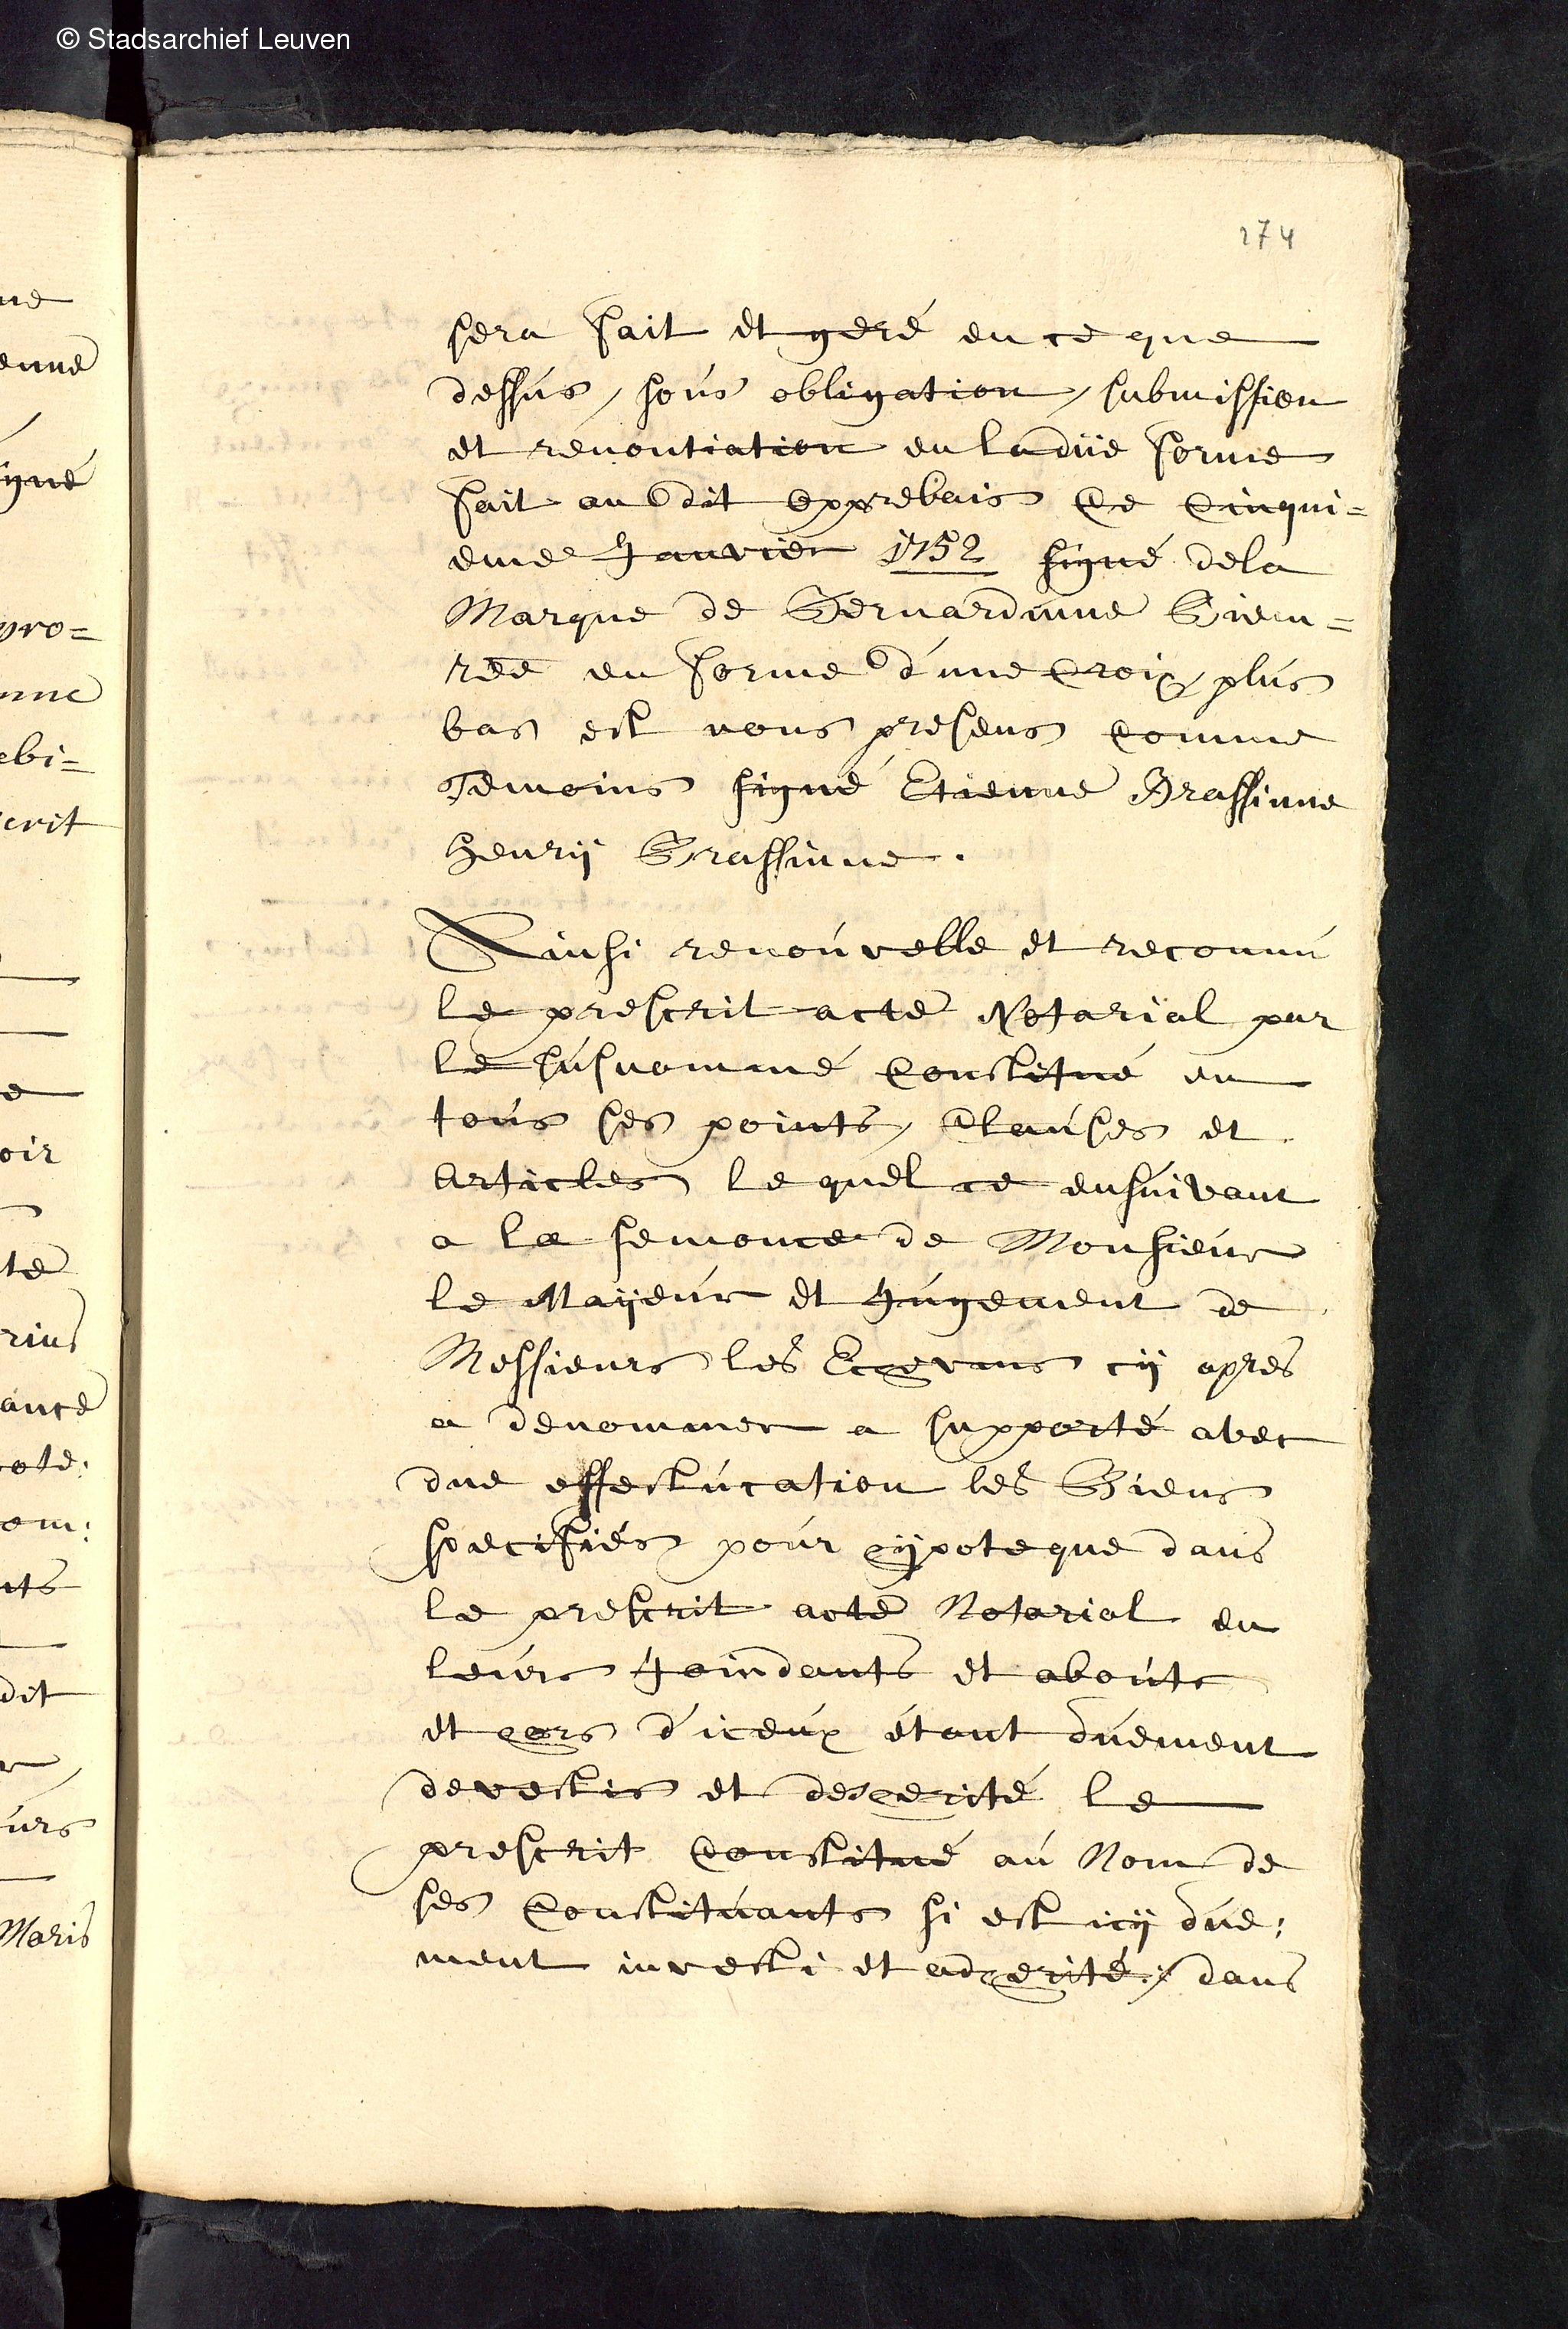 © Stadsarchief Leuven
274
sera fait et geré en ce que
dessus, sous obligation, submission
et renontiation en la düe forme
fait au dit Opprebais Ce Cinqui=
eme Janvier 1752 signé dela
Marque de Bernardinne Siem=
rée en forme d'une Croix plus
bas est nous presens Comme
Temoins signé Etienne Brassinne
Henrÿ Brassinne.
Ainsi renouvelle et reconnu
le prescrit acte Notarial par
le susnommé Constitué en
tous ses points, Clauses et
Articles le quel ce ensuivant
a la semonce de Monsieur
le Maÿeur et Jugement de
Messieurs les Echevins cÿ apres
a denommer a supporté avec
due effestucation les Biens
specifiés pour hÿpoteque dans
le prescrit acte Notarial en
leurs Joindants et abouts
et hors d'iceux étant duement
devestis et desherité le
prescrit Constitué au Nom de
ses Constituants si est icÿ due:
ment investi et adherité :/ dans
ne
enne
igné
pro=
nne
ebi=
crit
oir
te
rius
ance
cote:
om:
nts
dit
urs
Maris